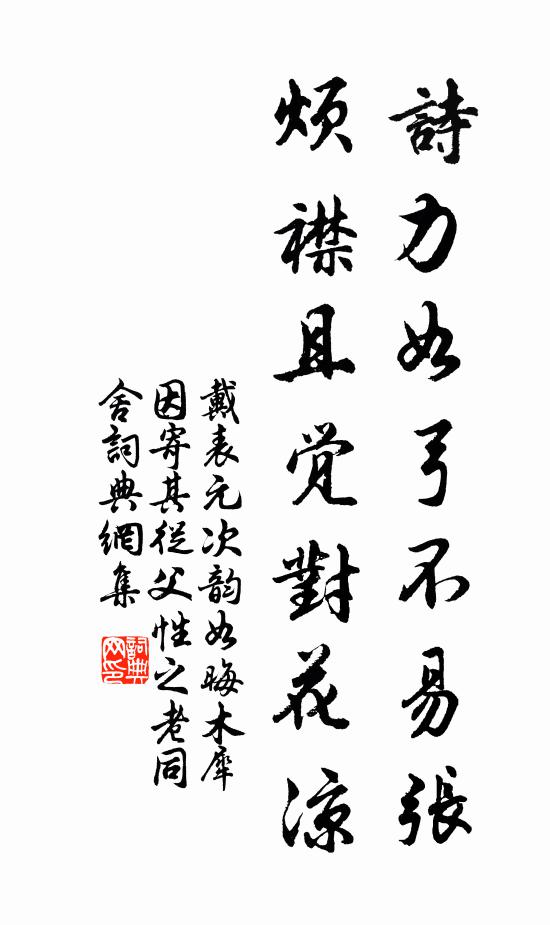 詩力如弓不易張
煩襟且覺對花涼
戴表元次韵如晦木犀
因寄其從父性之老同
舍詞典網集
詞典
网印